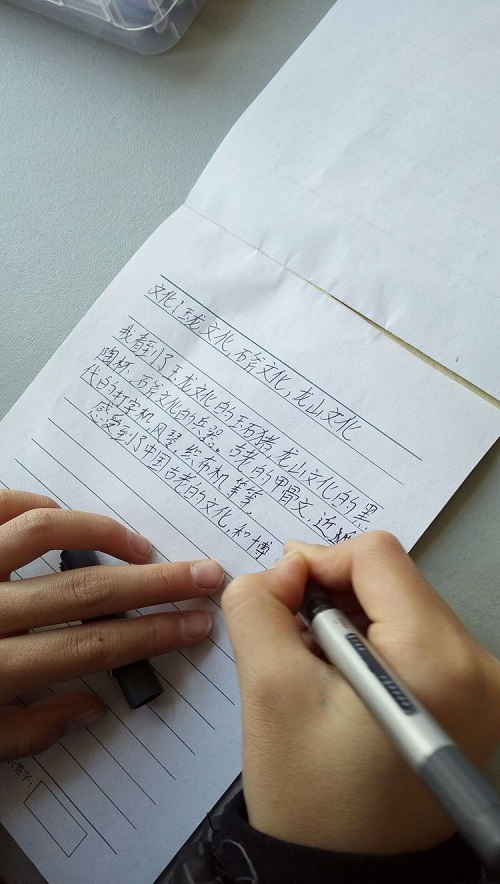 文化:玉龙文化,石器文化,龙山文化
我看到了玉龙文化的玉石猪,龙山文化的黑
陶杯,石器文化的兵器。古老的甲骨文,近
代的打字机,风琴,织布机等等。
感受到了中国古老的文化,和博